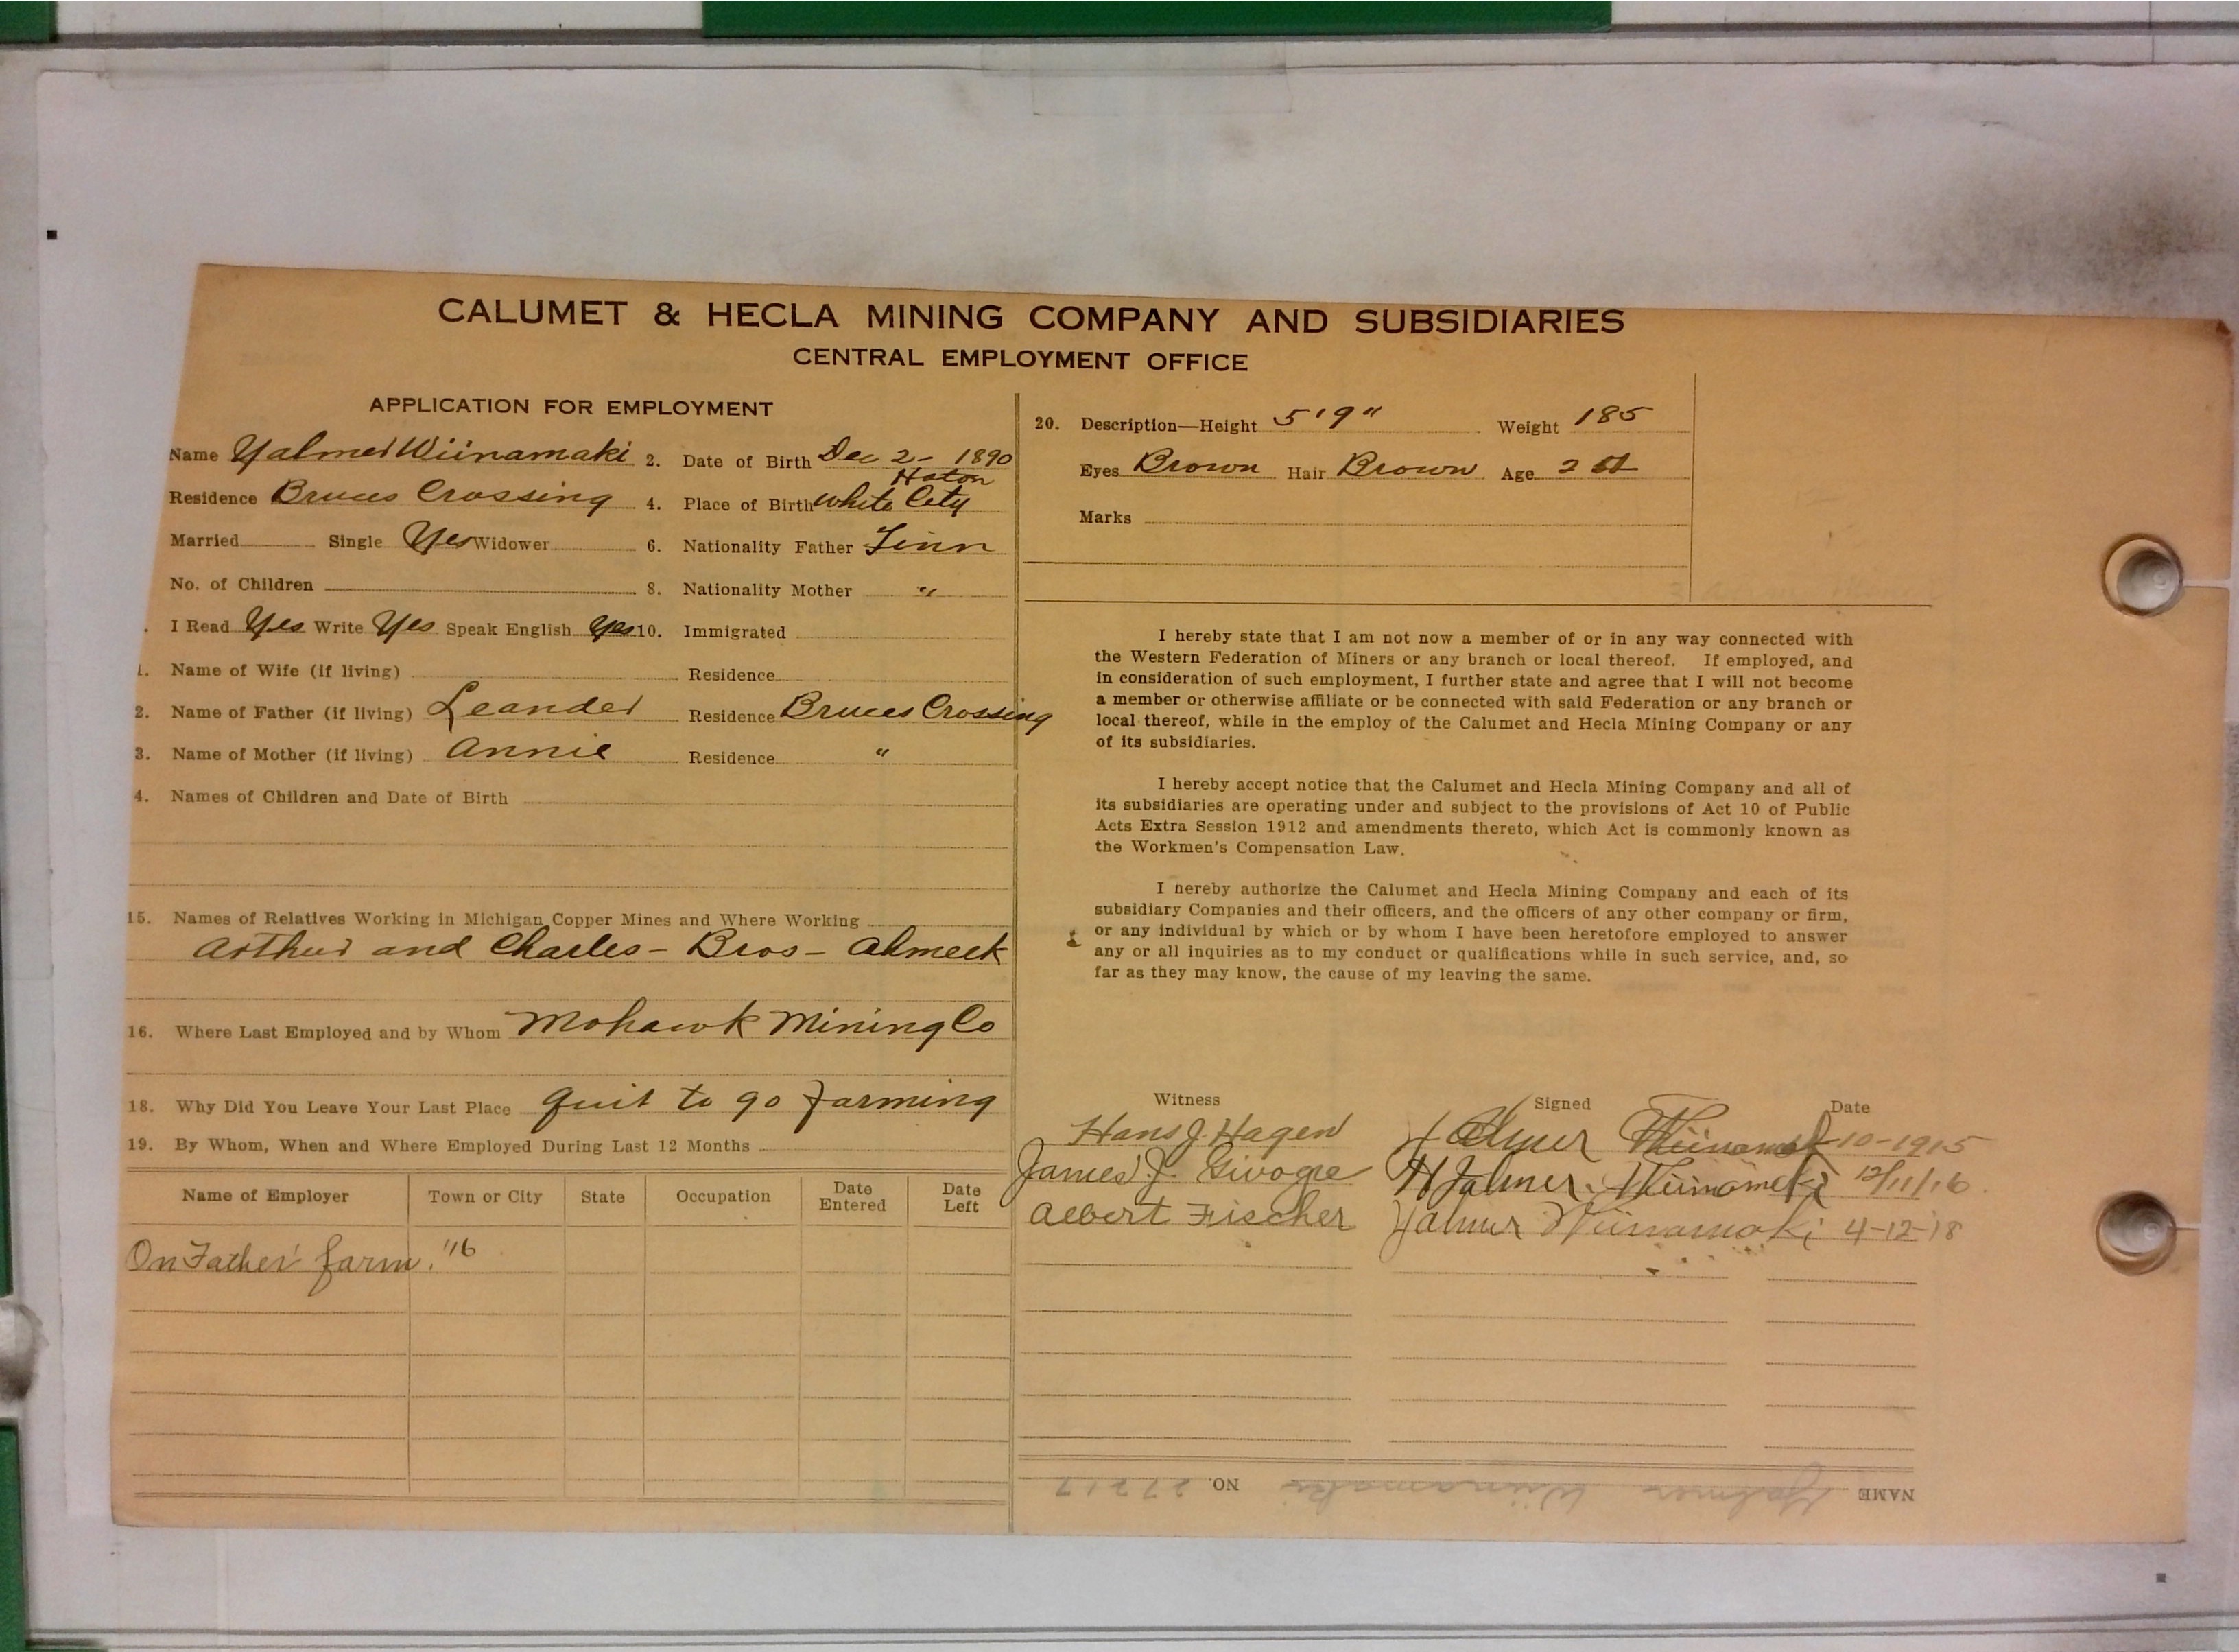 CALUMET & HECLA MINING COMPANY AND SUBSIDIARIES
CENTRAL EMPLOYMENT OFFICE
APPLICATION FOR EMPLOYMENT
Name Yalmer Wiinamaki 2. Date of Birth Dec 2- 1890
Residence Bruces Crossing 4. Place of Birth White City Hoton
Married Single Yes Widower 6. Nationality Father Finn
No. of Children 8. Nationality Mother "
I Read Yes Write Yes Speak English Yes 10. Immigrated
1. Name of Wife (if living) Residence
2. Name of Father (if living) Leander Residence Bruces Crossing
3. Name of Mother (if living) Annie Residence "
4. Names of Children and Date of Birth
15. Names of Relatives Working in Michigan Copper Mines and Where Working
Arthur and Charles - Bros - Ahmeek
16. Where Last Employed and by Whom Mohawk Mining Co
18. Why Did You Leave Your Last Place quit to go farming
19. By Whom, When and Where Employed During Last 12 Months
Name of Employer Town or City State Occupation Date Entered Date Left
On Father' farm. '16
20. Description—Height 5'9" Weight 185
Eyes Brown Hair Brown Age 2
Marks
I hereby state that I am not now a member of or in any way connected with
the Western Federation of Miners or any branch or local thereof. If employed, and
in consideration of such employment, I further state and agree that I will not become
a member or otherwise affiliate or be connected with said Federation or any branch or
local thereof, while in the employ of the Calumet and Hecla Mining Company or any
of its subsidiaries.
I hereby accept notice that the Calumet and Hecla Mining Company and all of
its subsidiaries are operating under and subject to the provisions of Act 10 of Public
Acts Extra Session 1912 and amendments thereto, which Act is commonly known as
the Workmen's Compensation Law.
I hereby authorize the Calumet and Hecla Mining Company and each of its
subsidiary Companies and their officers, and the officers of any other company or firm,
or any individual by which or by whom I have been heretofore employed to answer
any or all inquiries as to my conduct or qualifications while in such service, and, so
far as they may know, the cause of my leaving the same.
Witness Signed Date
Hans J Hagen Halmer Wiinamaki 10-1915
James J. Givogre Hjalmer Wiinamaki 12/11/16
Albert Fischer Yalmer Wiinamaki 4-12-18
NAME Yalmer Wiinamaki NO. 27217